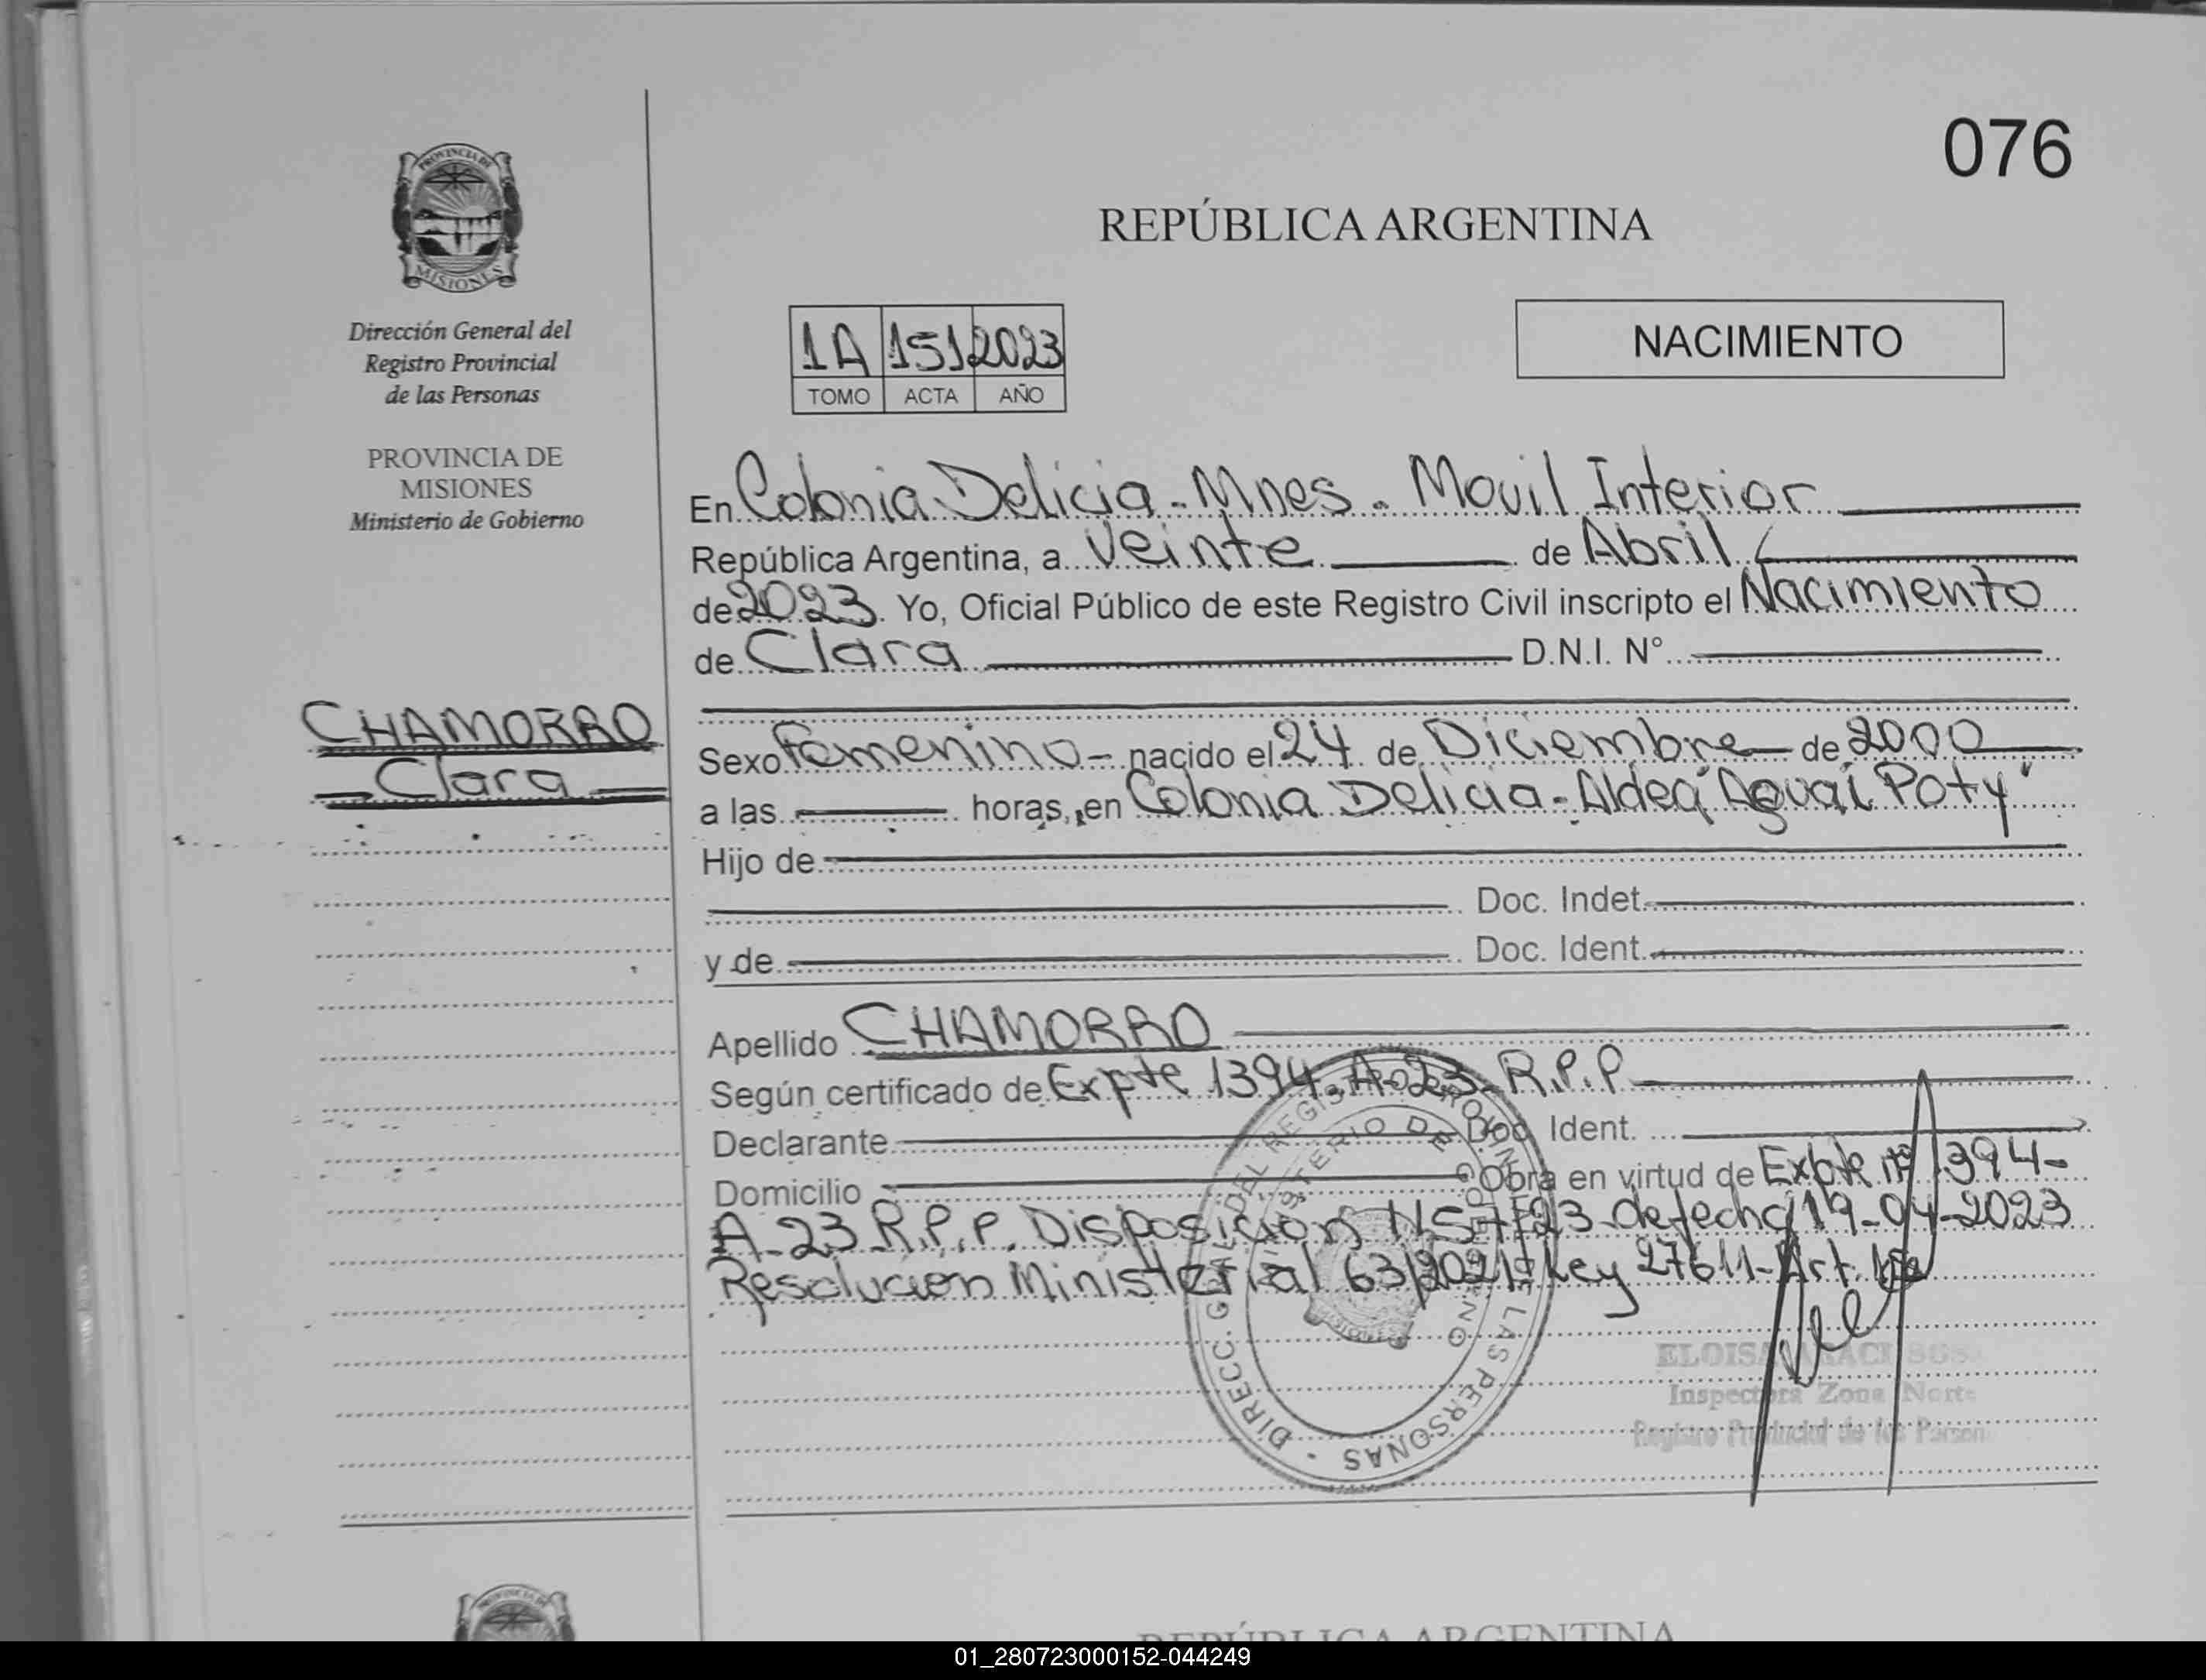 076
PROVINCIA DE
MISIONES
REPÚBLICA ARGENTINA
Dirección General del
Registro Provincial
de las Personas
PROVINCIA DE
MISIONES
Ministerio de Gobierno
1A 151 2023
TOMO ACTA AÑO
NACIMIENTO
CHAMORRO
Clara
En Colonia Delicia - Mnes - Movil Interior
República Argentina, a Veinte de Abril
de 2023. Yo, Oficial Público de este Registro Civil inscripto el Nacimiento
de Clara D.N.I. N°
Sexo Femenino - nacido el 24 de Diciembre de 2000
a las horas, en Colonia Delicia - Aldea "Aguaí Poty"
Hijo de
Doc. Indet.
y de Doc. Ident.
Apellido CHAMORRO
Según certificado de Expte 1394-A-23-R.P.P
Declarante Doc. Ident.
Domicilio Obra en virtud de Expte nº 1394-
A-23 R.P.P. Disposición de fecha 19-04-2023
Resolución Ministerial 63/2021 Ley 27611- Art.
DIRECC. GRAL. DEL REGISTRO PROVINCIAL DE LAS PERSONAS
MINISTERIO DE GOBIERNO
MISIONES
ELOISA
Inspectora Zona Norte
Registro Provincial de las Person
REPÚBLICA ARGENTINA
01_280723000152-044249